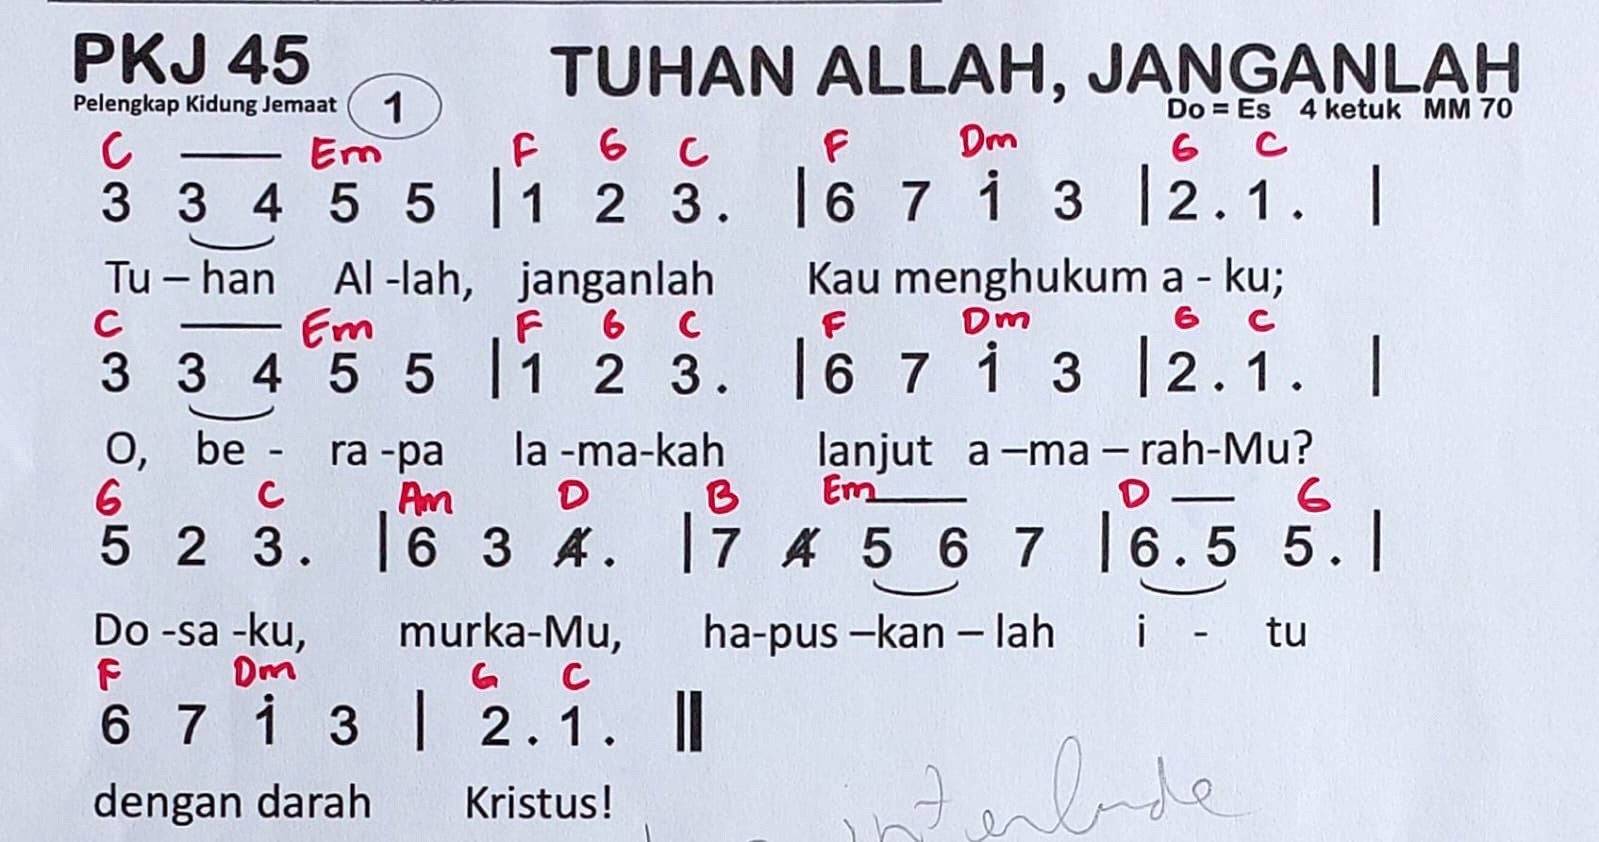 PKJ 45 TUHAN ALLAH, JANGANLAH
Pelengkap Kidung Jemaat 1 Do = Es 4 ketuk MM 70
C Em F G C F Dm G C
3 3 4 5 5 | 1 2 3 . | 6 7 1̇ 3 | 2 . 1 . |
Tu – han Al -lah, janganlah Kau menghukum a - ku;
C Em F G C F Dm G C
3 3 4 5 5 | 1 2 3 . | 6 7 1̇ 3 | 2 . 1 . |
O, be - ra -pa la -ma-kah lanjut a –ma – rah-Mu?
G C Am D B Em D G
5 2 3 . | 6 3 4̸ . | 7 4̸ 5 6 7 | 6 . 5 5 . |
Do -sa -ku, murka-Mu, ha-pus –kan – lah i - tu
F Dm G C
6 7 1̇ 3 | 2 . 1 . ||
dengan darah Kristus!
interlude